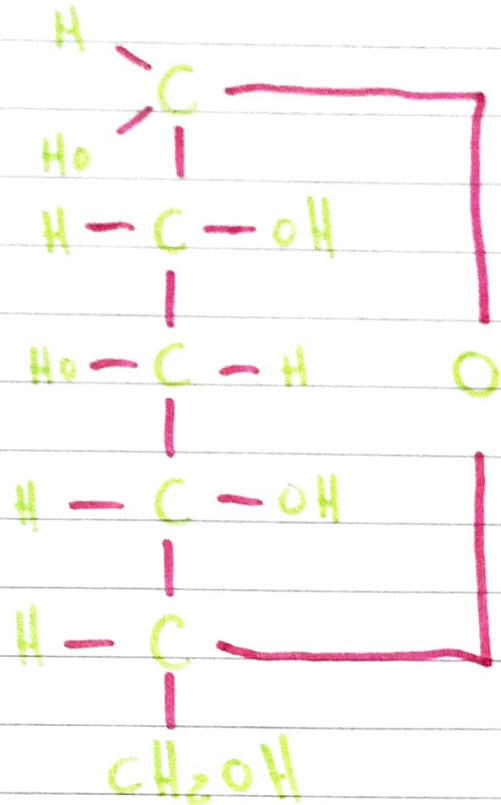 H
C
Ho
H — C — OH
Ho — C — H
O
H — C — OH
H — C
CH₂OH